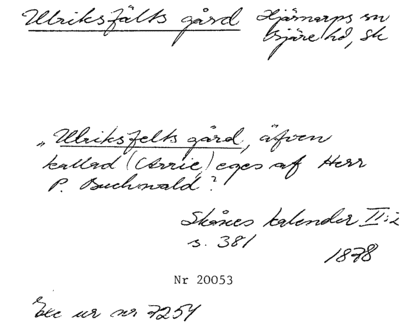 Ulriksfälts gård Hjärnarps sn
Bjäre hd, Sk
"Ulriksfelts gård, äfven
kallad (Arrie) eges af Herr
P. Buchwald?
Skånes kalender II:2
s. 381
1878
Nr 20053
Exc ur nr 7254